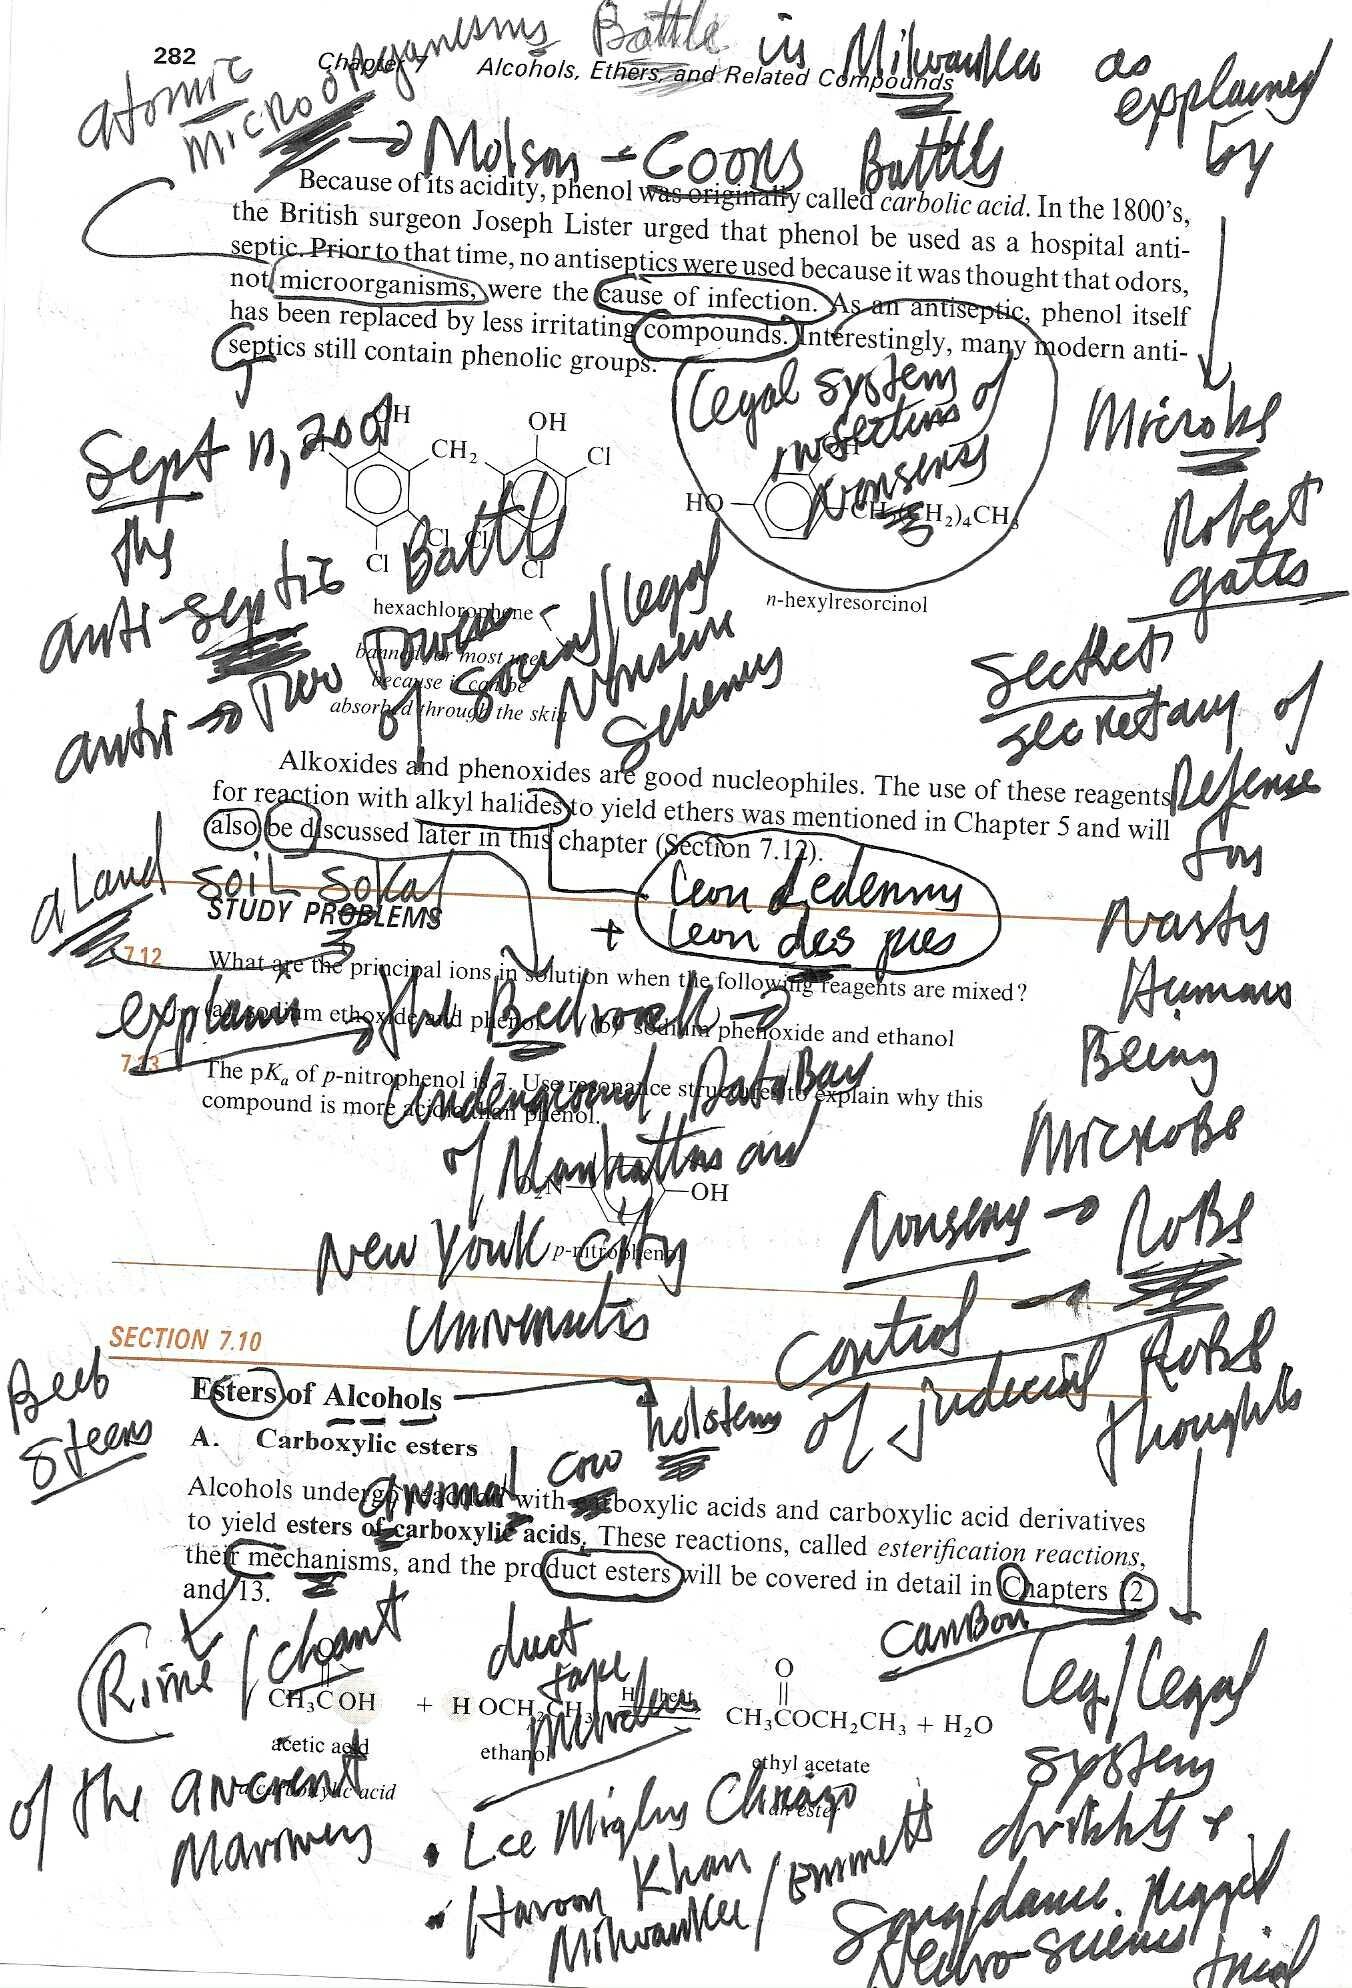 282 Chapter 7 Alcohols, Ethers, and Related Compounds
atomic microorganesms Battle in Milwaukee as explained by
→ Molson - Coors Battle
Because of its acidity, phenol was originally called carbolic acid. In the 1800's,
the British surgeon Joseph Lister urged that phenol be used as a hospital anti-
septic. Prior to that time, no antiseptics were used because it was thought that odors,
not microorganisms, were the cause of infection. As an antiseptic, phenol itself
has been replaced by less irritating compounds. Interestingly, many modern anti-
septics still contain phenolic groups.
Legal system
of
nonsense
Microbe
Robert
gates
secretary of
Defense
for
Nasty
Humans
Being
Microbe
Nonsense → Robe
Control →
of Judicial Robe
thoughts
Sept 11, 2001
the
anti-septic Battle
anti → Two Towers
of social/legal
Nonsense
Schemes
OH OH
CH₂ Cl
Cl Cl Cl
Cl
hexachlorophene
banned for most uses
because it can be
absorbed through the skin
OH
HO
CH₂(CH₂)₄CH₃
n-hexylresorcinol
Alkoxides and phenoxides are good nucleophiles. The use of these reagents
for reaction with alkyl halides to yield ethers was mentioned in Chapter 5 and will
also be discussed later in this chapter (Section 7.12).
aLand soil sokal
Leon dedenny
+ Leon des pres
STUDY PROBLEMS
7.12 What are the principal ions in solution when the following reagents are mixed?
(a) sodium ethoxide and phenol (b) sodium phenoxide and ethanol
explains → the Bedrock →
Underground Data Bay
of Manhattan and
New York City
Universitis
7.13 The pKa of p-nitrophenol is 7. Use resonance structures to explain why this
compound is more acidic than phenol.
O₂N OH
p-nitrophenol
SECTION 7.10
Beeb
steens
Esters of Alcohols
holstens
A. Carboxylic esters
animal cow
Alcohols undergo reaction with carboxylic acids and carboxylic acid derivatives
to yield esters of carboxylic acids. These reactions, called esterification reactions,
their mechanisms, and the product esters will be covered in detail in Chapters 12
and 13.
Rime / chant
of the ancient
Mariners
duct
tape
Murders
Carbon
O O
CH₃COH + HOCH₂CH₃ H⁺, heat CH₃COCH₂CH₃ + H₂O
acetic acid ethanol ethyl acetate
a carboxylic acid an ester
• Lee Miglin Chicago
• Haroon Khan
Milwaukee / Emmett
Leg/Legal
system
Song/dance. rigged
Necro-science trial